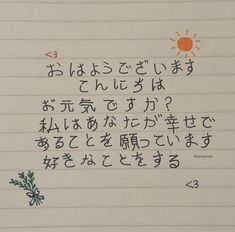 <3
おはようございます
こんにちは
お元気ですか?
私はあなたが幸せで
あることを願っています
好きなことをする
<3